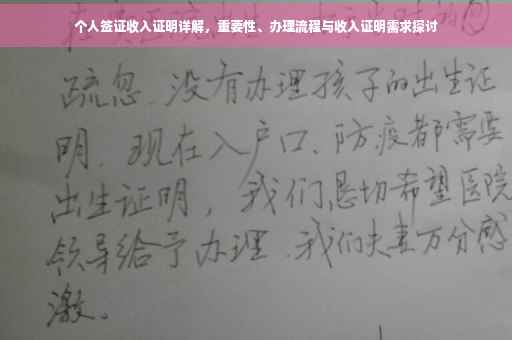 个人签证收入证明详解，重要性、办理流程与收入证明需求探讨
疏忽、没有办理孩子的出生证
明、现在入户口、防疫都需要
出生证明，我们恳切希望医院
领导给予办理、我们夫妻万分感
激。